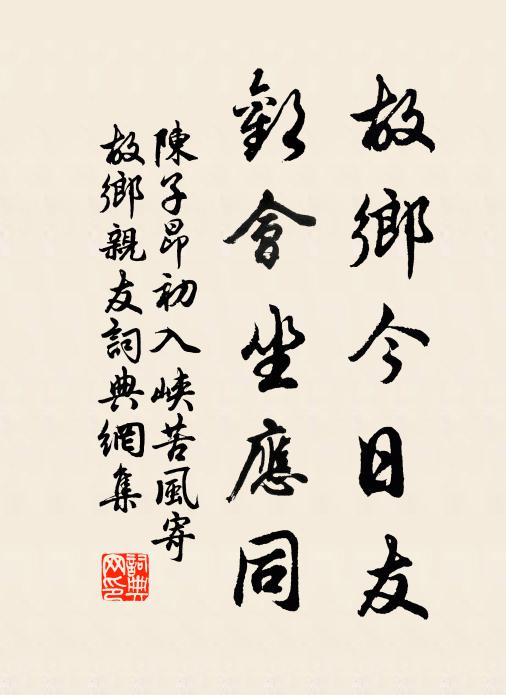 故鄉今日友
歡會坐應同
陳子昂初入峽苦風寄
故鄉親友詞典網集
詞典
网印